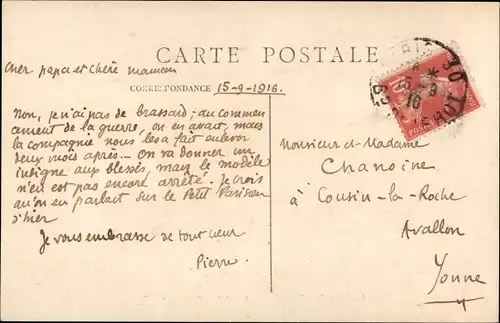 CARTE POSTALE
Cher papa et chère maman
CORRESPONDANCE 15-9-1916.
Non, je n'ai pas de brassard; au commen
cement de la guerre, on en avait, mais
la compagnie nous les a fait enlever
deux mois après... On va donner un
insigne aux blessés, mais le modèle
n'en est pas encore arrêté. Je crois
qu'on en parlait sur le Petit Parisien
d'hier
Je vous embrasse de tout cœur
Pierre
Monsieur et Madame
Chanoine
à Cousin-la-Roche
Avallon
Yonne